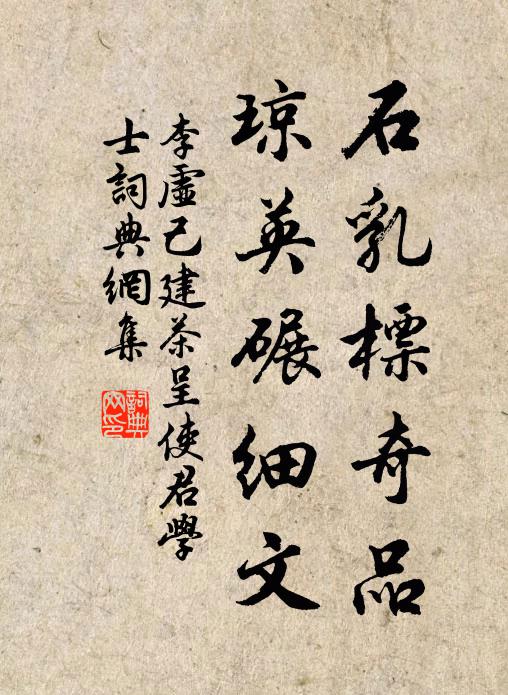 石乳標奇品
琼英碾細文
李虛己建茶呈使君學
士詞典網集
詞典网印